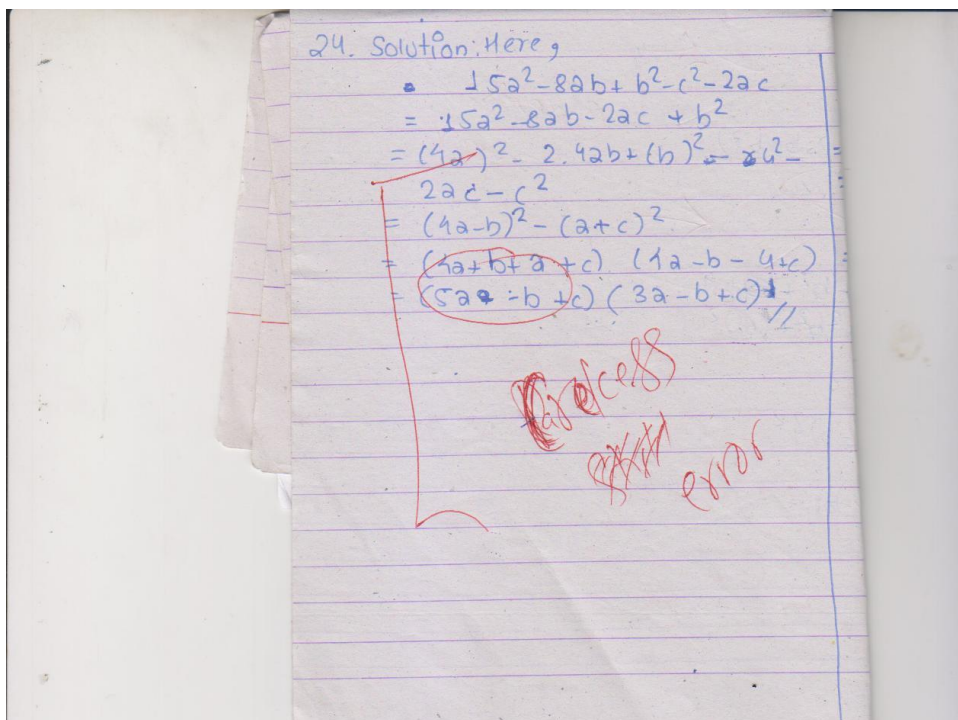 24. Solution: Here,
15a²-8ab+b²-c²-2ac
= 15a²-8ab-2ac+b²
= (4a)²-2.4ab+(b)²-
2ac-c²
= (4a-b)²-(a+c)²
= (4a+b+a+c) (4a-b-4+c)
= (5a-b+c)(3a-b+c)
Careless
error